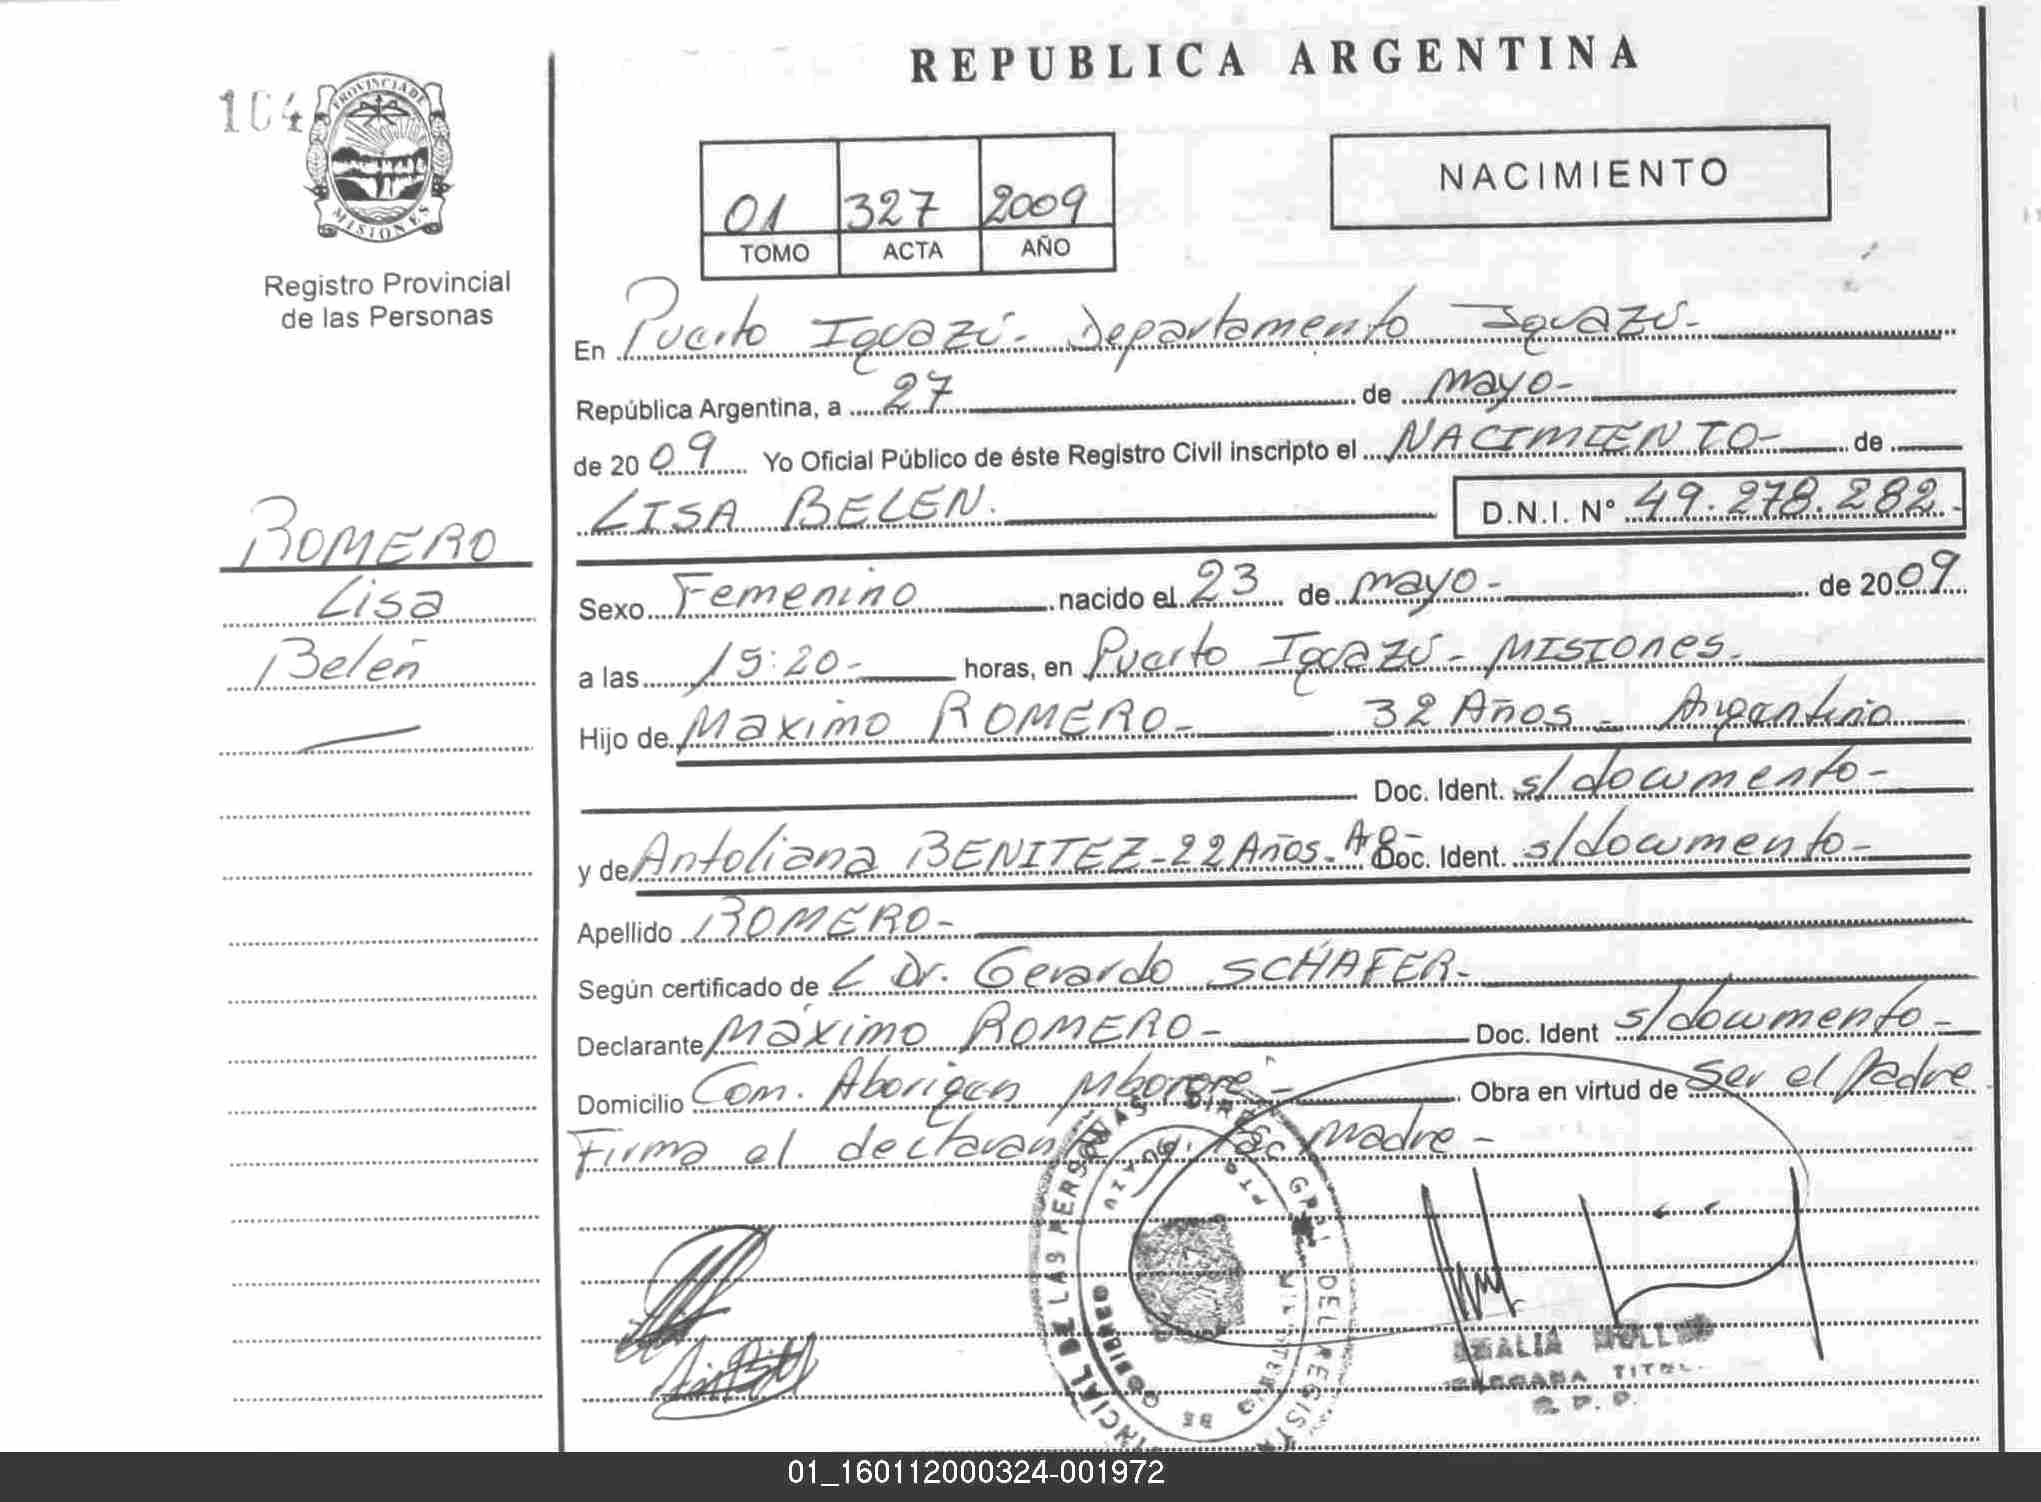 REPUBLICA ARGENTINA
104
PROVINCIA DE MISIONES
Registro Provincial
de las Personas
01 327 2009
TOMO ACTA AÑO
NACIMIENTO
En Puerto Iguazú - Departamento Iguazú -
República Argentina, a 27 de mayo -
de 2009 Yo Oficial Público de éste Registro Civil inscripto el NACIMIENTO - de
LISA BELEN. D.N.I. N° 49.278.282 -
ROMERO
Lisa
Belén
Sexo Femenino nacido el 23 de mayo - de 2009
a las 15:20 - horas, en Puerto Iguazú - MISIONES -
Hijo de Maximo ROMERO - 32 Años - Argentino
Doc. Ident. s/documento -
y de Antoliana BENITEZ - 22 Años - Doc. Ident. s/documento -
Apellido ROMERO -
Según certificado de Dr. Gerardo SCHAFER -
Declarante Máximo ROMERO - Doc. Ident s/documento -
Domicilio Com. Aborigen Mbororé - Obra en virtud de ser el padre
Firma el declarante madre -
01_160112000324-001972